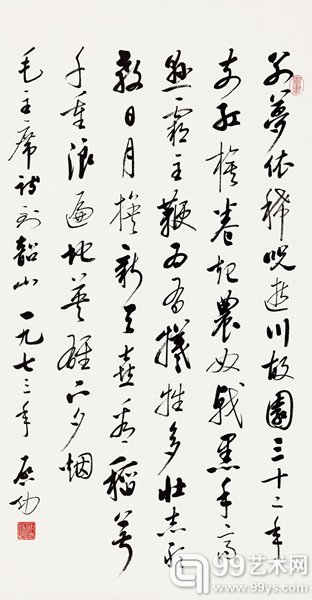 别夢依稀咒逝川故園三十二年
前红旗卷起農奴戟黑手高
悬霸主鞭为有犧牲多壮志敢
教日月换新天喜看稻菽
千重浪遍地英雄下夕烟
毛主席诗到韶山 一九七三年 启功
99艺术网
www.99ys.com